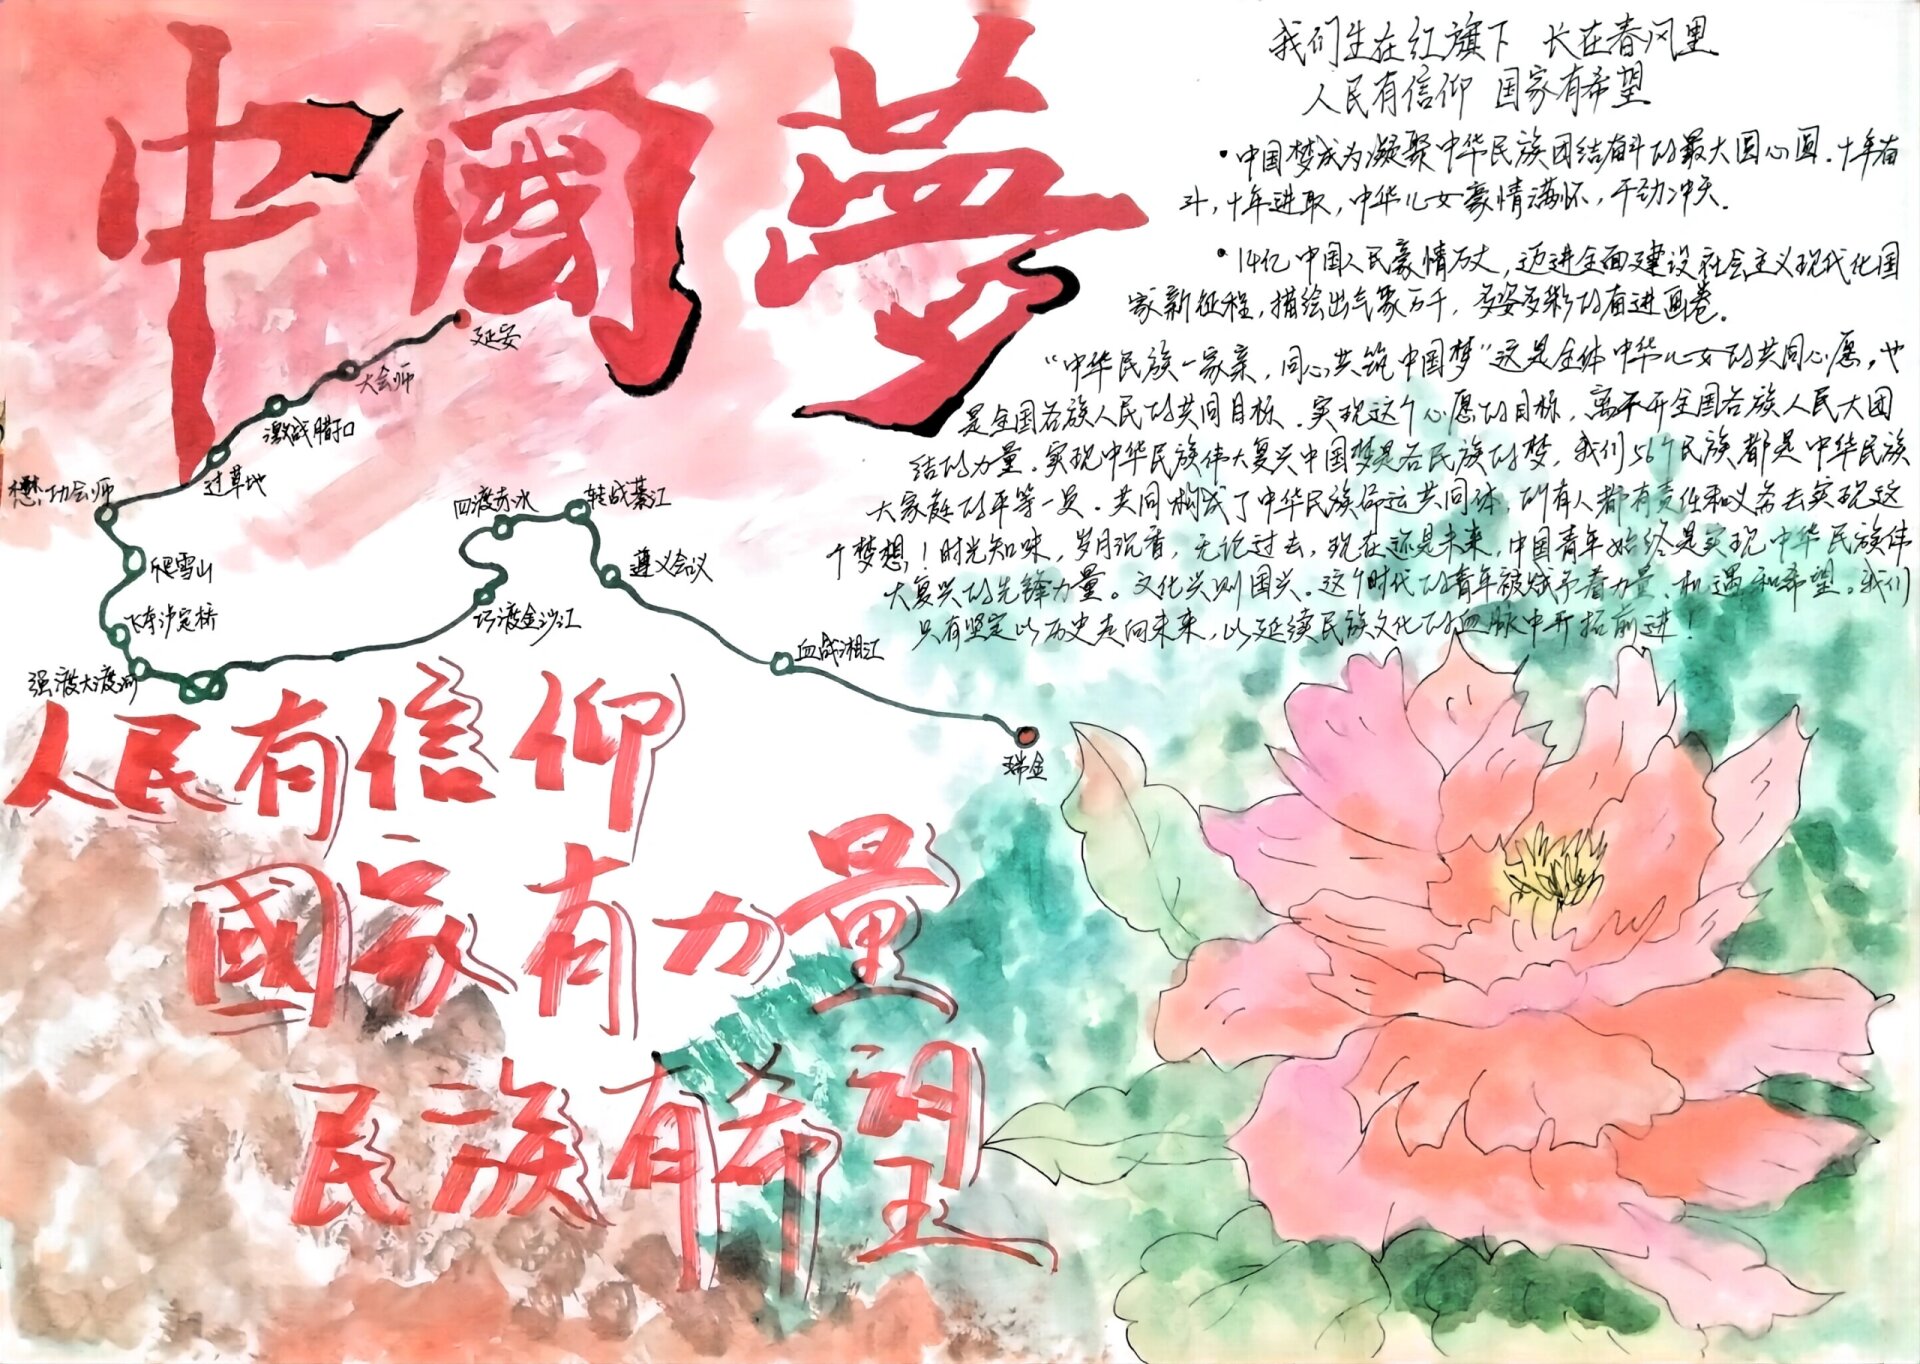 中國夢
我们生在红旗下 长在春风里
人民有信仰 国家有希望
·中国梦成为凝聚中华民族团结奋斗的最大圆心圆.十年奋
斗,十年进取,中华儿女豪情满怀,干劲冲天.
·14亿中国人民豪情万丈,迈进全面建设社会主义现代化国
家新征程,描绘出气象万千,多姿多彩的奋进画卷。
“中华民族一家亲,同心共筑中国梦”这是全体中华儿女的共同心愿,也
是全国各族人民的共同目标.实现这个心愿的目标,离不开全国各族人民大团
结的力量.实现中华民族伟大复兴中国梦是各民族的梦,我们56个民族都是中华民族
大家庭的平等一员.共同构成了中华民族命运共同体,所有人都有责任和义务去实现这
个梦想!时光知味,岁月沉香,无论过去,现在还是未来,中国青年始终是实现中华民族伟
大复兴的先锋力量。文化兴则国兴.这个时代的青年被赋予着力量、机遇和希望。我们
只有坚定从历史走向未来,从延续民族文化的血脉中开拓前进!
延安
大会师
激战腊子口
过草地
懋功会师
爬雪山
飞夺泸定桥
强渡大渡河
巧渡金沙江
四渡赤水
转战綦江
遵义会议
血战湘江
瑞金
人民有信仰
國家有力量
民族有希望